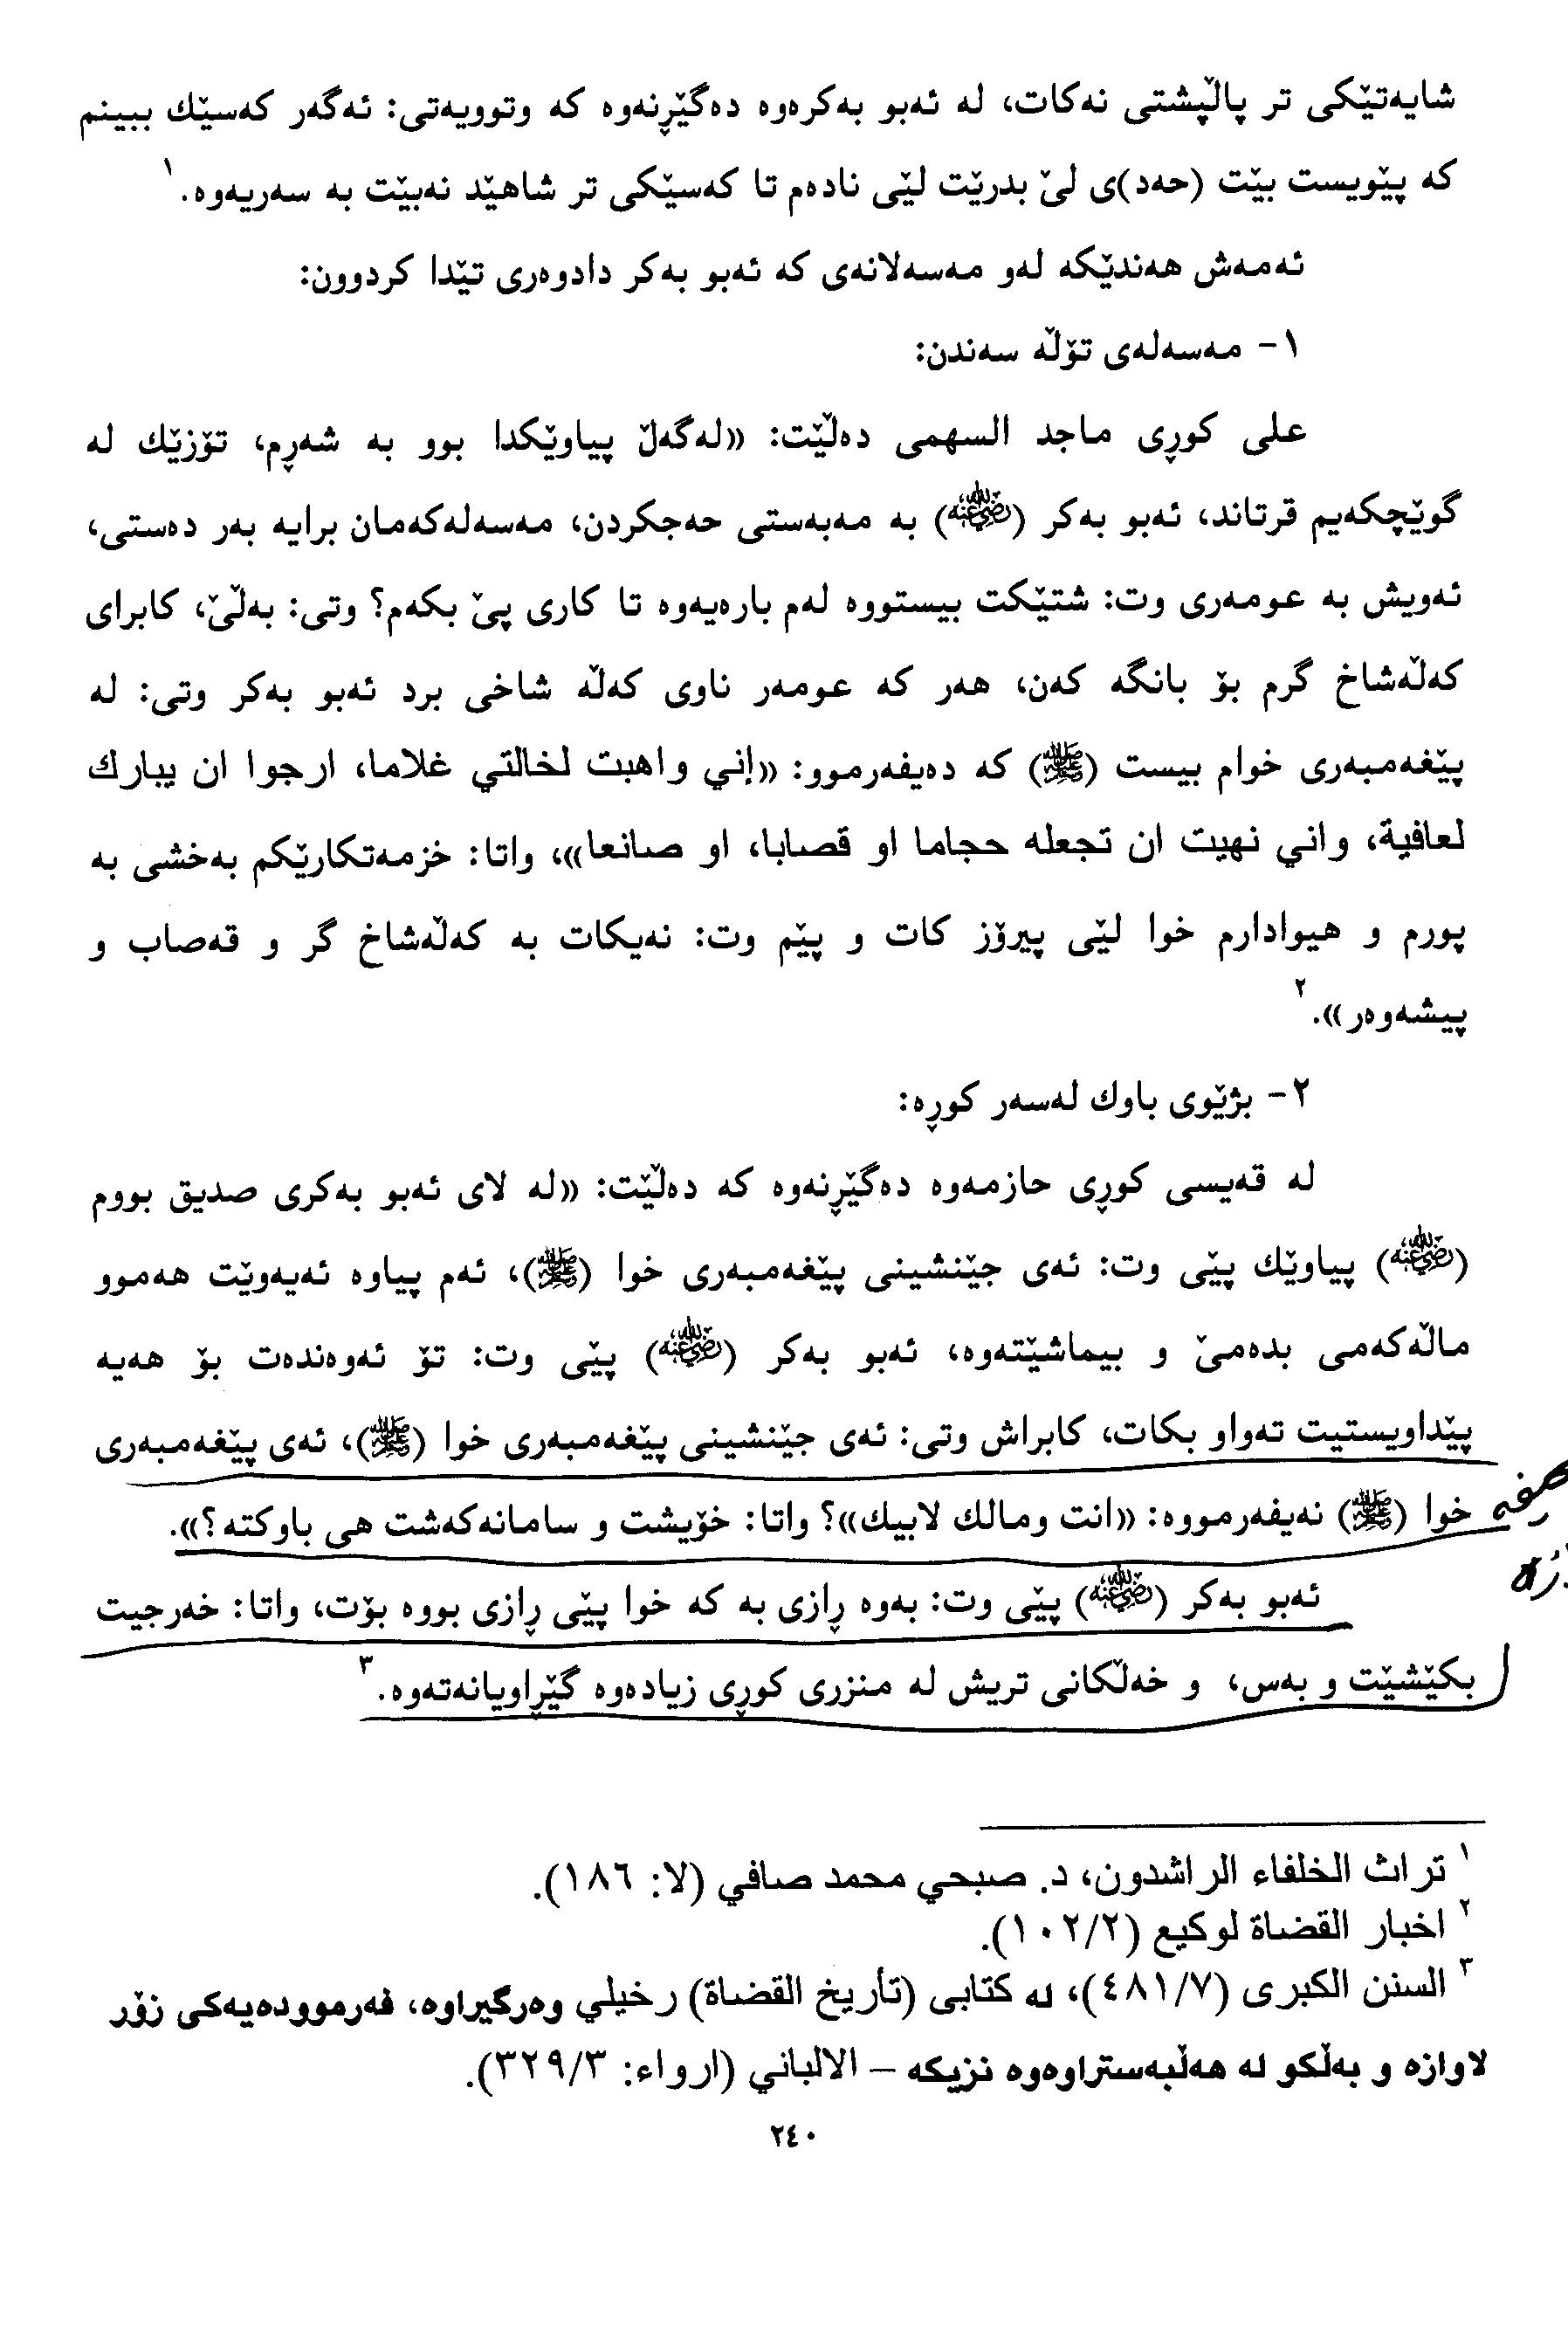 شایەتێکی تر پاڵپشتی نەکات، لە ئەبو بەکرەوە دەگێڕنەوە کە وتوویەتی: ئەگەر کەسێك ببینم
کە پێویست بێت (حەد)ی لێ بدرێت لێی نادەم تا کەسێکی تر شاهێد نەبێت بە سەریەوە.١
ئەمەش هەندێکە لەو مەسەلانەی کە ئەبو بەکر دادوەری تێدا کردوون:
١- مەسەلەی تۆڵە سەندن:
علی کوڕی ماجد السهمی دەڵێت: «لەگەڵ پیاوێکدا بوو بە شەڕم، تۆزێك لە
گوێچکەیم قرتاند، ئەبو بەکر (رضي الله عنه) بە مەبەستی حەجکردن، مەسەلەکەمان برایە بەر دەستی،
ئەویش بە عومەری وت: شتێکت بیستووە لەم بارەیەوە تا کاری پێ بکەم؟ وتی: بەڵێ، کابرای
کەڵەشاخ گرم بۆ بانگە کەن، هەر کە عومەر ناوی کەڵە شاخی برد ئەبو بەکر وتی: لە
پێغەمبەری خوام بیست (ﷺ) کە دەیفەرموو: «إني واهبت لخالتي غلاما، ارجوا ان يبارك
لعافية، واني نهيت ان تجعله حجاما او قصابا، او صانعا»، واتا: خزمەتکارێکم بەخشی بە
پورم و هیوادارم خوا لێی پیرۆز کات و پێم وت: نەیکات بە کەڵەشاخ گر و قەصاب و
پیشەوەر».٢
٢- بژێوی باوك لەسەر کورە:
لە قەیسی کوڕی حازمەوە دەگێڕنەوە کە دەڵێت: «لە لای ئەبو بەکری صدیق بووم
(رضي الله عنه) پیاوێك پێی وت: ئەی جێنشینی پێغەمبەری خوا (ﷺ)، ئەم پیاوە ئەیەوێت هەموو
ماڵەکەمی بدەمێ و بیماشێتەوە، ئەبو بەکر (رضي الله عنه) پێی وت: تۆ ئەوەندەت بۆ هەیە
پێداویستیت تەواو بکات، کابراش وتی: ئەی جێنشینی پێغەمبەری خوا (ﷺ)، ئەی پێغەمبەری
خوا (ﷺ) نەیفەرمووە: «انت ومالك لابيك»؟ واتا: خۆیشت و سامانەکەشت هی باوکتە؟».
ئەبو بەکر (رضي الله عنه) پێی وت: بەوە ڕازی بە کە خوا پێی ڕازی بووە بۆت، واتا: خەرجیت
بکێشێت و بەس، و خەڵکانی تریش لە منزری کوڕی زیادەوە گێڕاویانەتەوە.٣
١ تراث الخلفاء الراشدون، د. صبحي محمد صافي (لا: ١٨٦).
٢ اخبار القضاة لوكيع (١٠٢/٢).
٣ السنن الكبرى (٤٨١/٧)، لە کتابی (تأريخ القضاة) رخيلي وەرگیراوە، فەرموودەیەکی زۆر
لاوازە و بەڵکو لە هەڵبەستراوەوە نزیکە – الالباني (ارواء: ٣٢٩/٣).
٢٤٠